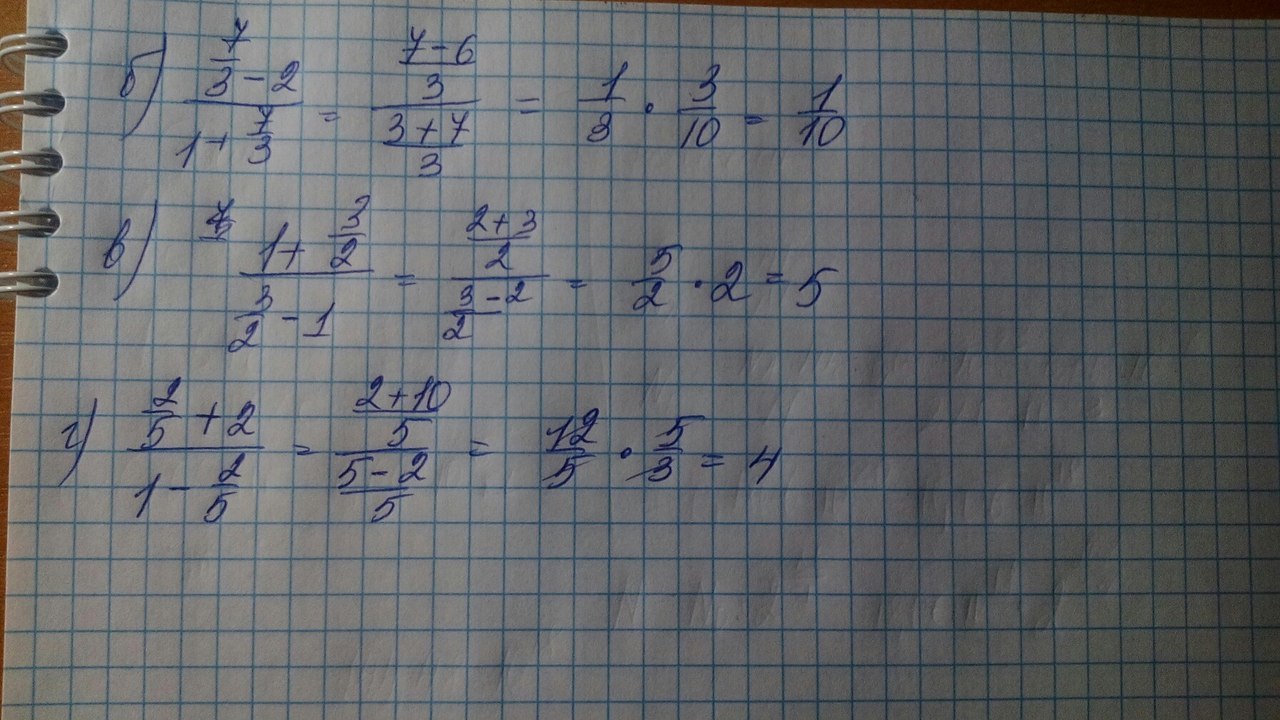 б) (7/3 - 2)/(1 + 7/3) = ((7 - 6)/3)/((3 + 7)/3) = 1/3 · 3/10 = 1/10
в) (1 + 3/2)/(3/2 - 1) = ((2 + 3)/2)/((3 - 2)/2) = 5/2 · 2 = 5
г) (2/5 + 2)/(1 - 2/5) = ((2 + 10)/5)/((5 - 2)/5) = 12/5 · 5/3 = 4